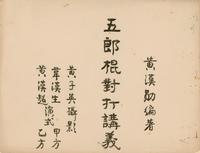 黃漢勛編著
五郎棍對打講義
黃子英攝影
韋漢生演式甲方
黃漢超演式乙方